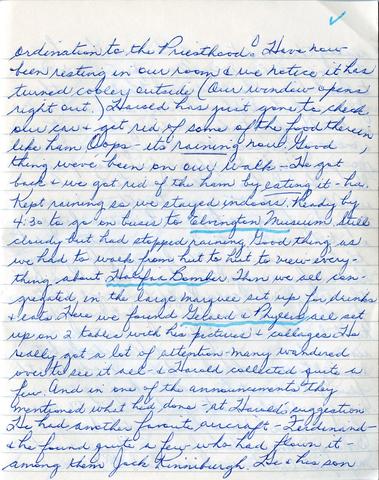 ordination to the Priesthood! Have now
been resting in our room & we notice it has
turned cooler outside (Our window opens
right out.) Harold has just gone to check
our car & get rid of some of the food therein
like ham Oops - its raining now. Good
thing we've been on our walk - He got
back & we got rid of the ham by eating it - ha.
Kept raining so we stayed indoors. Ready by
4:30 to go on buses to Elvington Museum. Still
cloudy but had stopped raining. Good thing as
we had to walk from hut to hut to view every-
thing about Halifax Bomber. Then we all con-
gregated in the large marquee set up for drinks
& eats. Here we found & Phyllis all set
up on 2 tables with his pictures & collages. He
really got a lot of attention - many wandered
over to see it all - & Harold collected quite a
few. And in one of the announcements they
mentioned what had done - at Harold's suggestion
He had another favorite aircraft - Ferdinand -
& he found quite a few who had flown it -
among them Jack Kinniburgh. He & his son